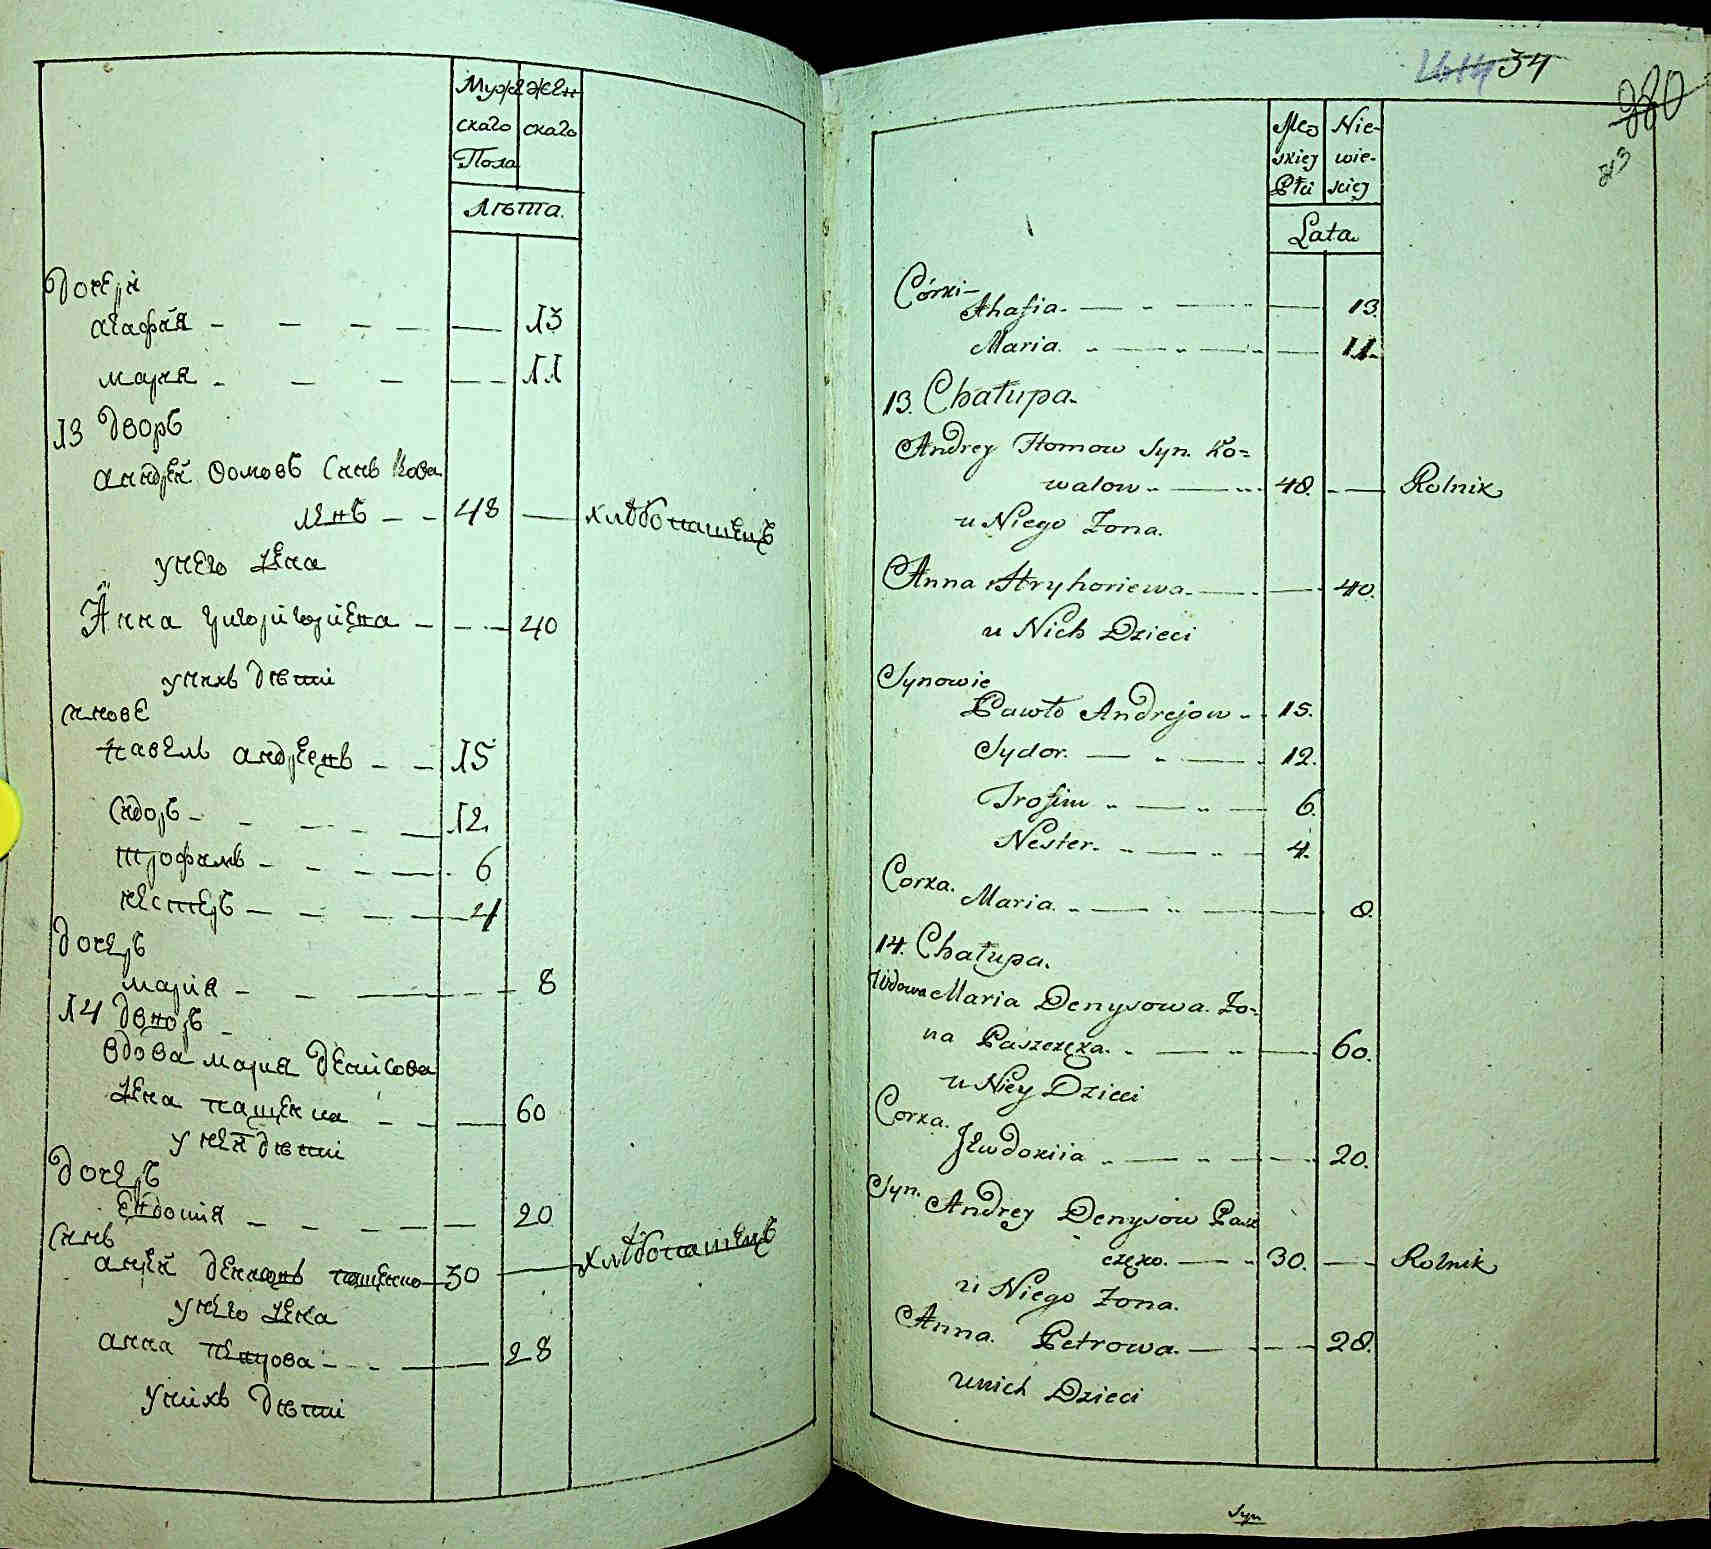 Муже Жен
скаго скаго
Пола
Лѣта.
Дочери
агафия - - - - — 13
мария - - - - - 11
13 дворъ
андрей Ѳомовъ Синъ Кова
ленъ - - 48 — хлѣбопашецъ
унего жена
Анна григоригориева - - - 40
унихъ дѣти
синове
павелъ андреевъ - - 15
Сидоръ - - - - 12.
трофимъ - - - - 6
нестеръ - - - - 4
дочеръ
мария - - — - - 8
14 дворъ -
вдова мария денисова
жена пащенка - - — 60
у нея дѣти
дочеръ
евдотия - - - - — 20
Синъ
андрей денисовъ пащенко 30 — хлѣбопашецъ
унего жена
анна петрова - - - — 28
унихъ дѣти
34
380
Męs Nie-
skiej wie-
Płci skiej
Lata.
Córki-
Ahafia. — - — — 13.
Maria. - — - — - — 11.
13. Chałupa.
Andrey Homow Syn. Ko=
walow - — - 48. - — Rolnik
u Niego Zona.
Anna Hryhoriewa. — - — - 40.
u Nich Dzieci
Synowie
Pawło Andrejow - - 15.
Sydor. — - — 12.
Trofim - — - — 6.
Nester. - — - — 4.
Corka. Maria. - — - — — 8.
14. Chałupa.
Wdowa Maria Denysowa. Zo-
na Paszczęka. - — - — 60.
u Niey Dzieci
Corka.
Jewdokiia - — - — — 20.
Syn. Andrey Denysow Pasz
częko. — - 30. — - Rolnik
u Niego Zona.
Anna. Petrowa. — - — - 28.
unich Dzieci
Syn